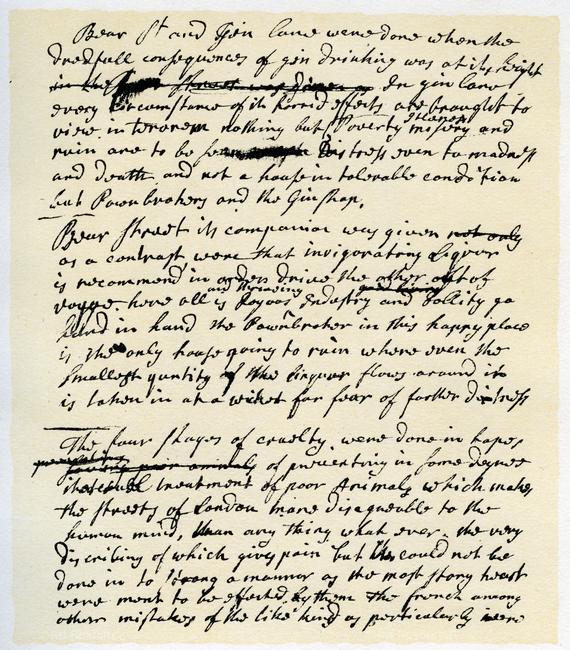 Bear St and Gin Lane were done when the
dredfull consequences of gin drinking was at its hight
in the was given In gin lane
every circumstance of its horrid effects are brought to
view in terorem nothing but Poverty misery and
Idleness
ruin are to be seen Distress even to madness
and death, and not a house in tolerable condition
but Pawnbrokers and the Ginshop,
Bear Street its companion was given not only
as a contrast were that invigorating Liquor
is recommend in orders drive the other out of
vogue. here all is Joyous Industry and Jollity go
and thriveing
hand in hand the Pawnbroker in this happy place
is the only house going to ruin where even the
smallest quntity of the Linquer flows around it
is taken in at a wicket for fear of farther distress
The four stages of cruelty, were done in hopes
of preventing in some degree
treatment of poor Animals which makes
the streets of London more disagreable to the
human mind, than any thing what ever, the very
discribing of which gives pain but it could not be
done in to strong a manner as the most stony heart
were ment to be effected by them the french among
other mistakes of the like kind as particularly were